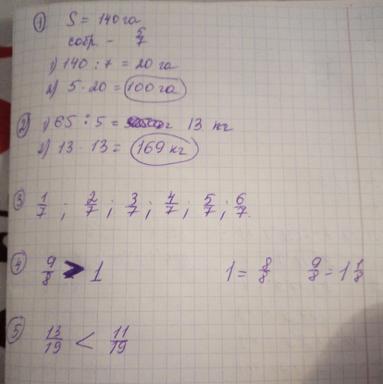 ① S = 140 га
собр. - 5/7
1) 140 : 7 = 20 га
2) 5 · 20 = 100 га
② 1) 65 : 5 = 13 кг
2) 13 · 13 = 169 кг
③ 1/7 ; 2/7 ; 3/7 ; 4/7 ; 5/7 ; 6/7.
④ 9/8 > 1 1 = 8/8 9/8 = 1 1/8
⑤ 13/19 < 11/19